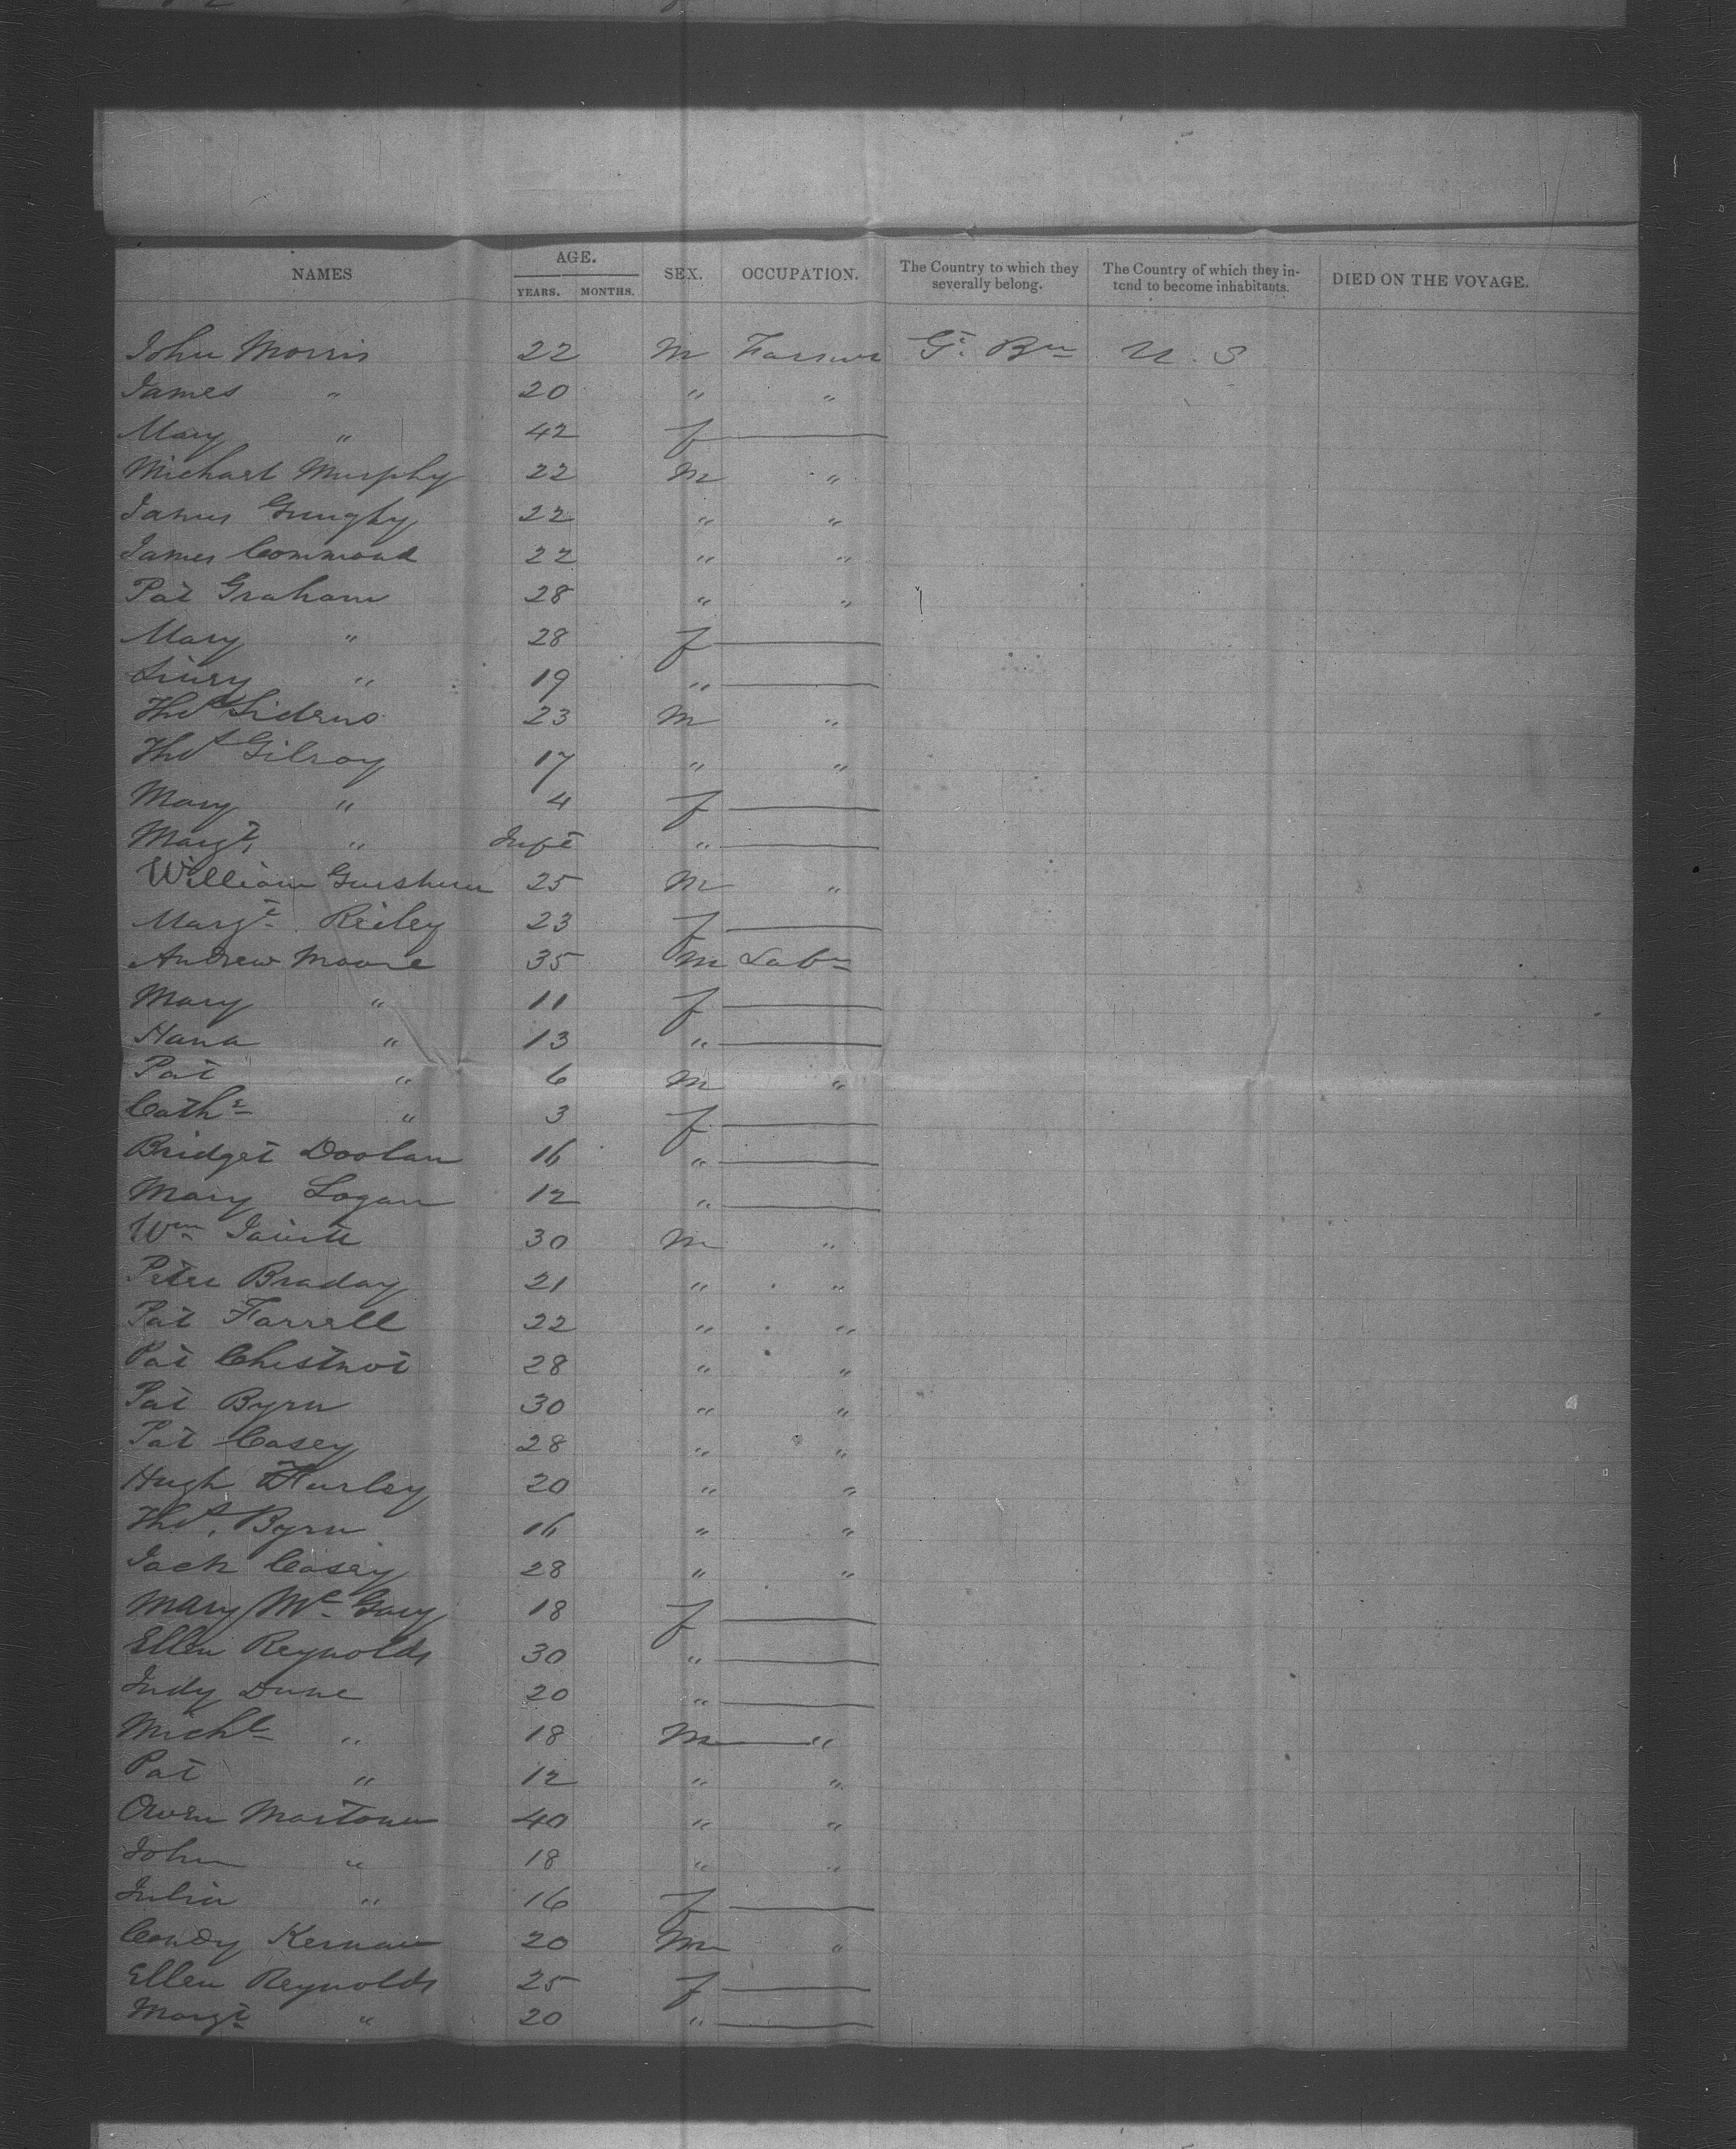 NAMES AGE. YEARS. MONTHS. SEX. OCCUPATION. The Country to which they severally belong. The Country of which they intend to become inhabitants. DIED ON THE VOYAGE.
John Morris 22 M Farmer Gt. Bn U. S
James " 20 " "
Mary " 42 f
Michael Murphy 22 M "
James 22 " "
James Command 22 " "
Pat Graham 28 " "
Mary " 28 f
" 19 "
Thos 23 M "
Thos Gilroy 17 " "
Mary " 4 f
Margt " Inft "
William 25 M "
Margt Reiley 23 f
Andrew Moore 35 M Labr
Mary " 11 f
Hana " 13 "
Pat " 6 M "
Cathe " 3 f
Bridget Doolan 16 "
Mary Logan 12 "
Wm 30 M "
Peter Braday 21 " "
Pat Farrell 22 " "
Pat Chestnot 28 " "
Pat Byrn 30 " "
Pat Casey 28 " "
Hugh Hurley 20 " "
Thos. Byrn 16 " "
Jack Casey 28 " "
Mary Mc Gary 18 f
Ellen Reynolds 30 "
Judy Dune 20 "
Michl " 18 M "
Pat " 12 " "
Owen 40 " "
John " 18 " "
Julia " 16 f
Condy Kernan 20 M "
Ellen Reynolds 25 f
Margt " 20 "